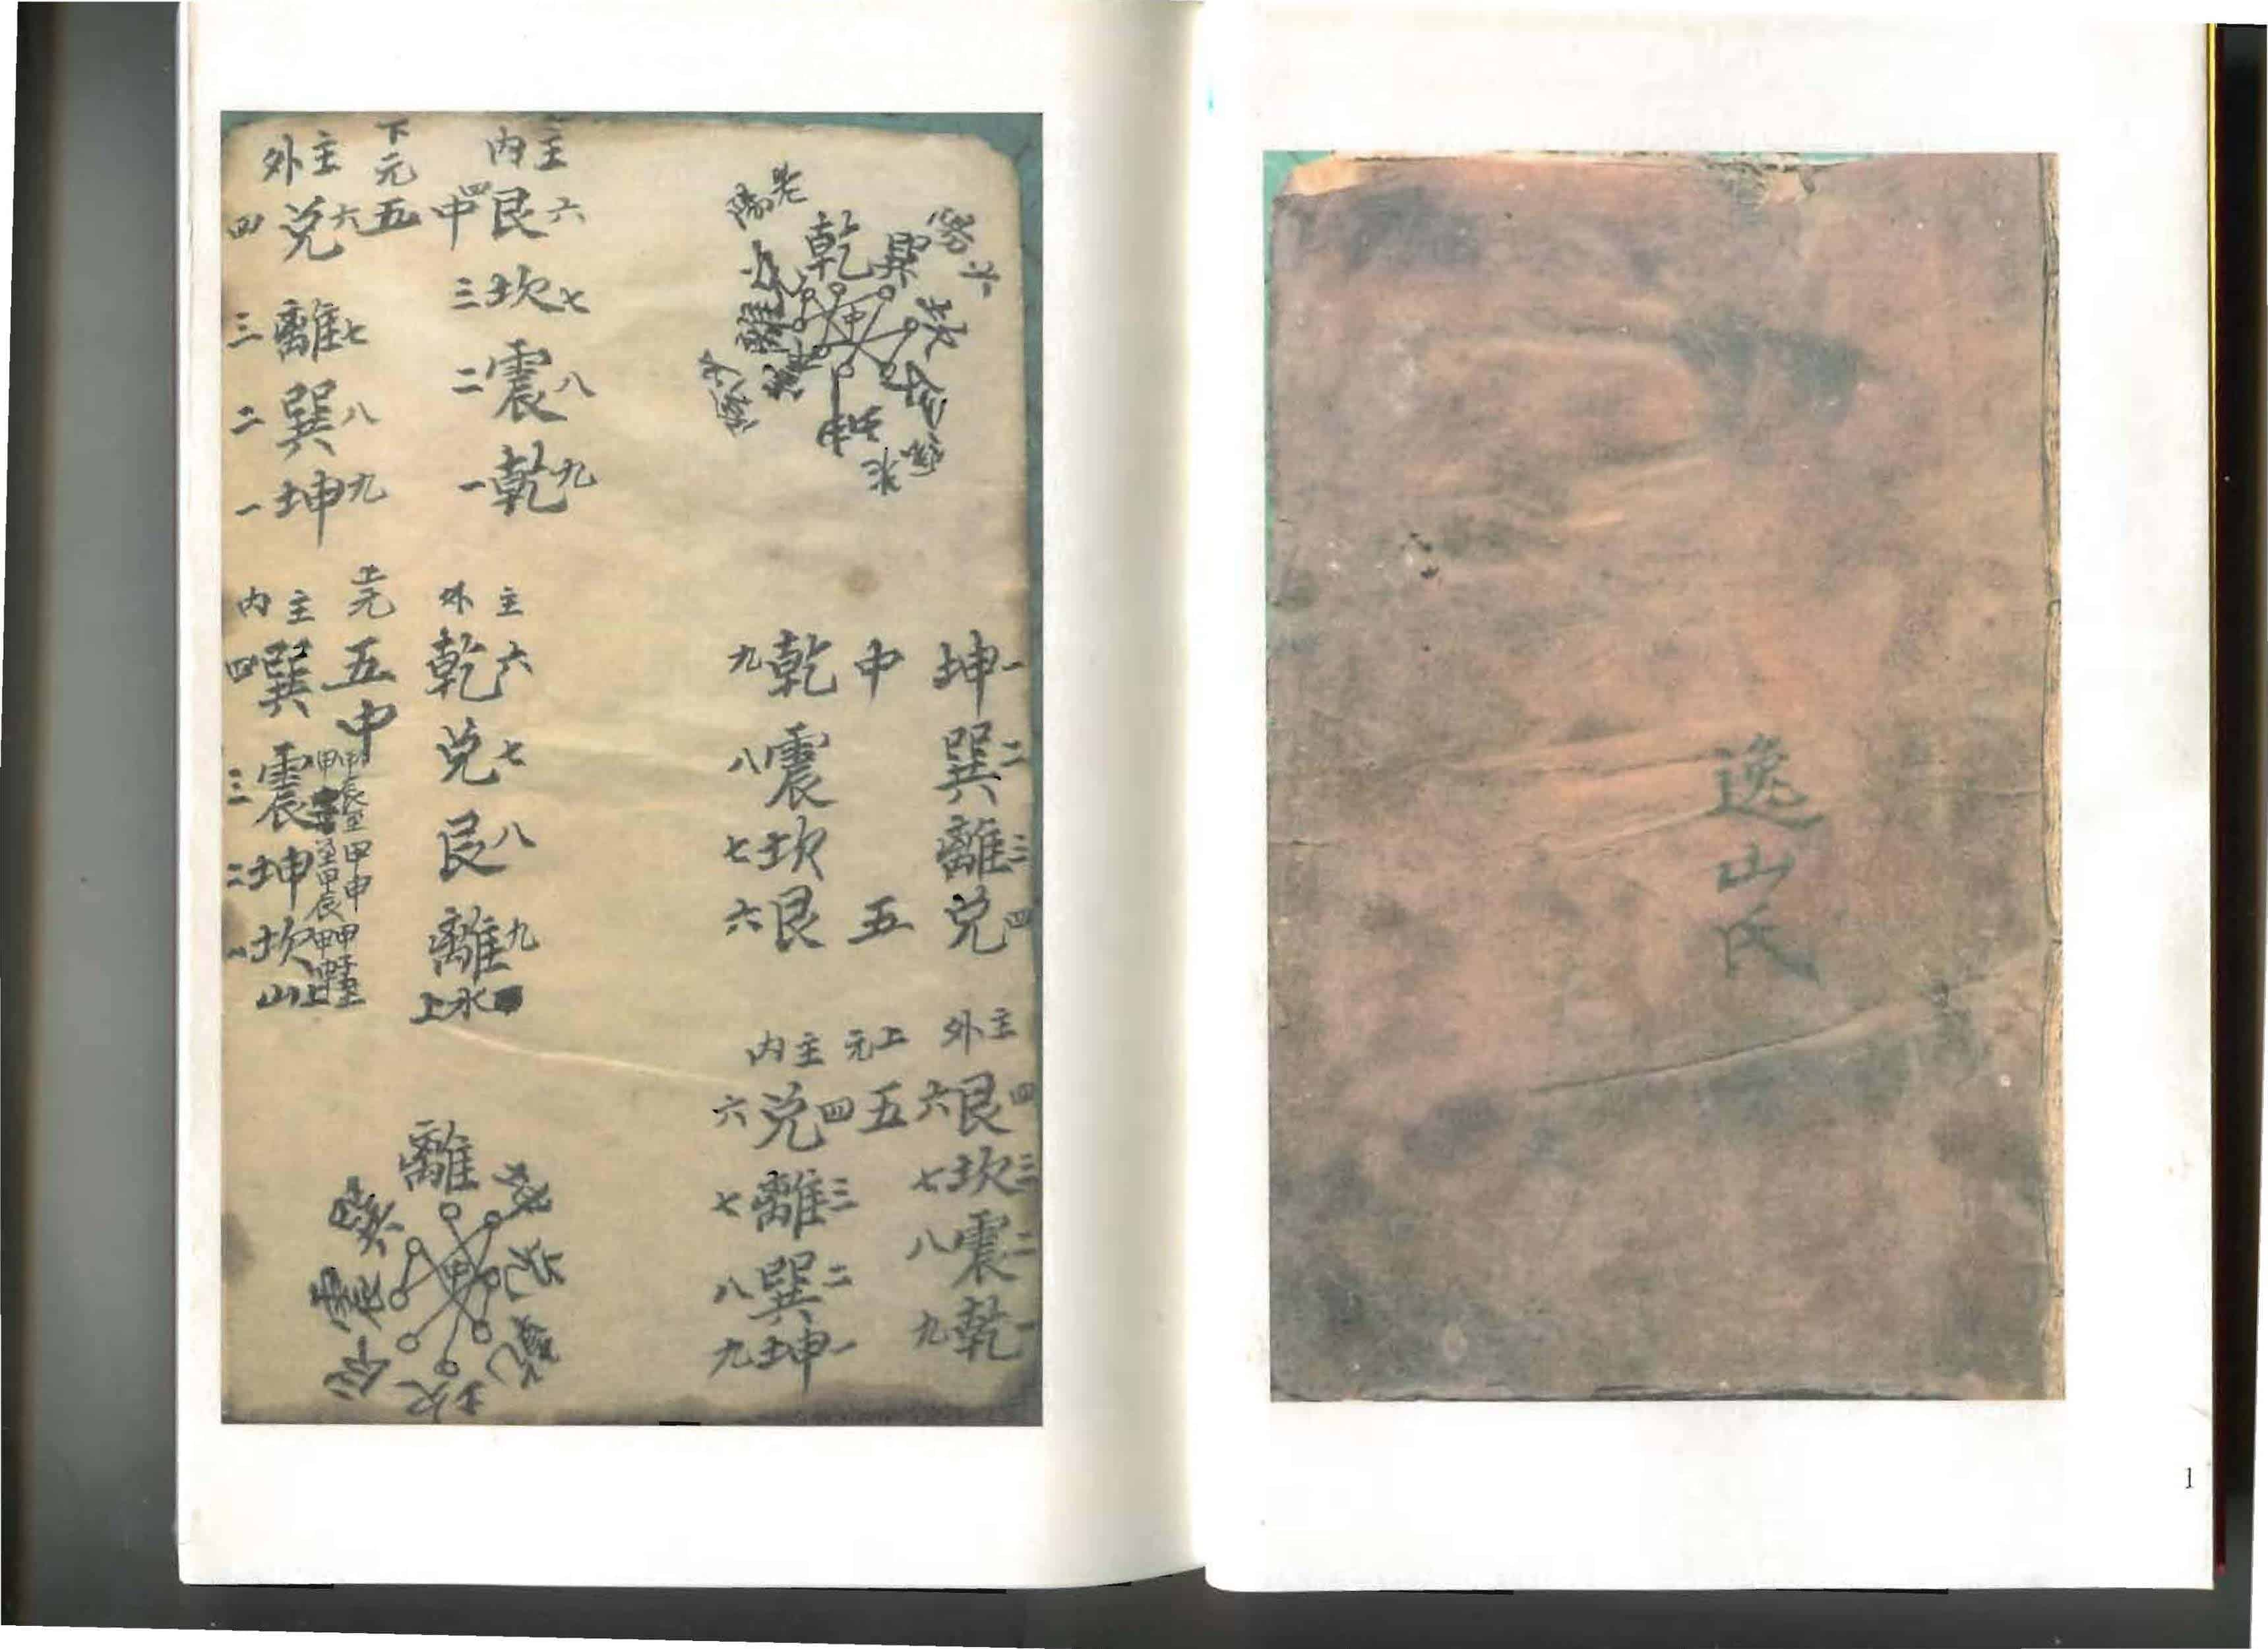 逸山氏
1
老陽
乾
巽
坎
艮
坤
離
中
坤一
巽二
離三
兌四
中
五
乾九
震八
坎七
艮六
主外
六艮四
七坎三
八震二
九乾一
上元
五
主內
六兌四
七離三
八巽二
九坤一
主內
艮六
三坎七
二震八
一乾九
四中
下元
五
主外
四兌六
三離七
二巽八
一坤九
主外
乾六
兌七
艮八
離九
水上
上元
五
中
甲辰至甲申
主內
四巽
三震
二坤
一坎
山上
離
坤
兌
乾
坎
艮
震
巽
中